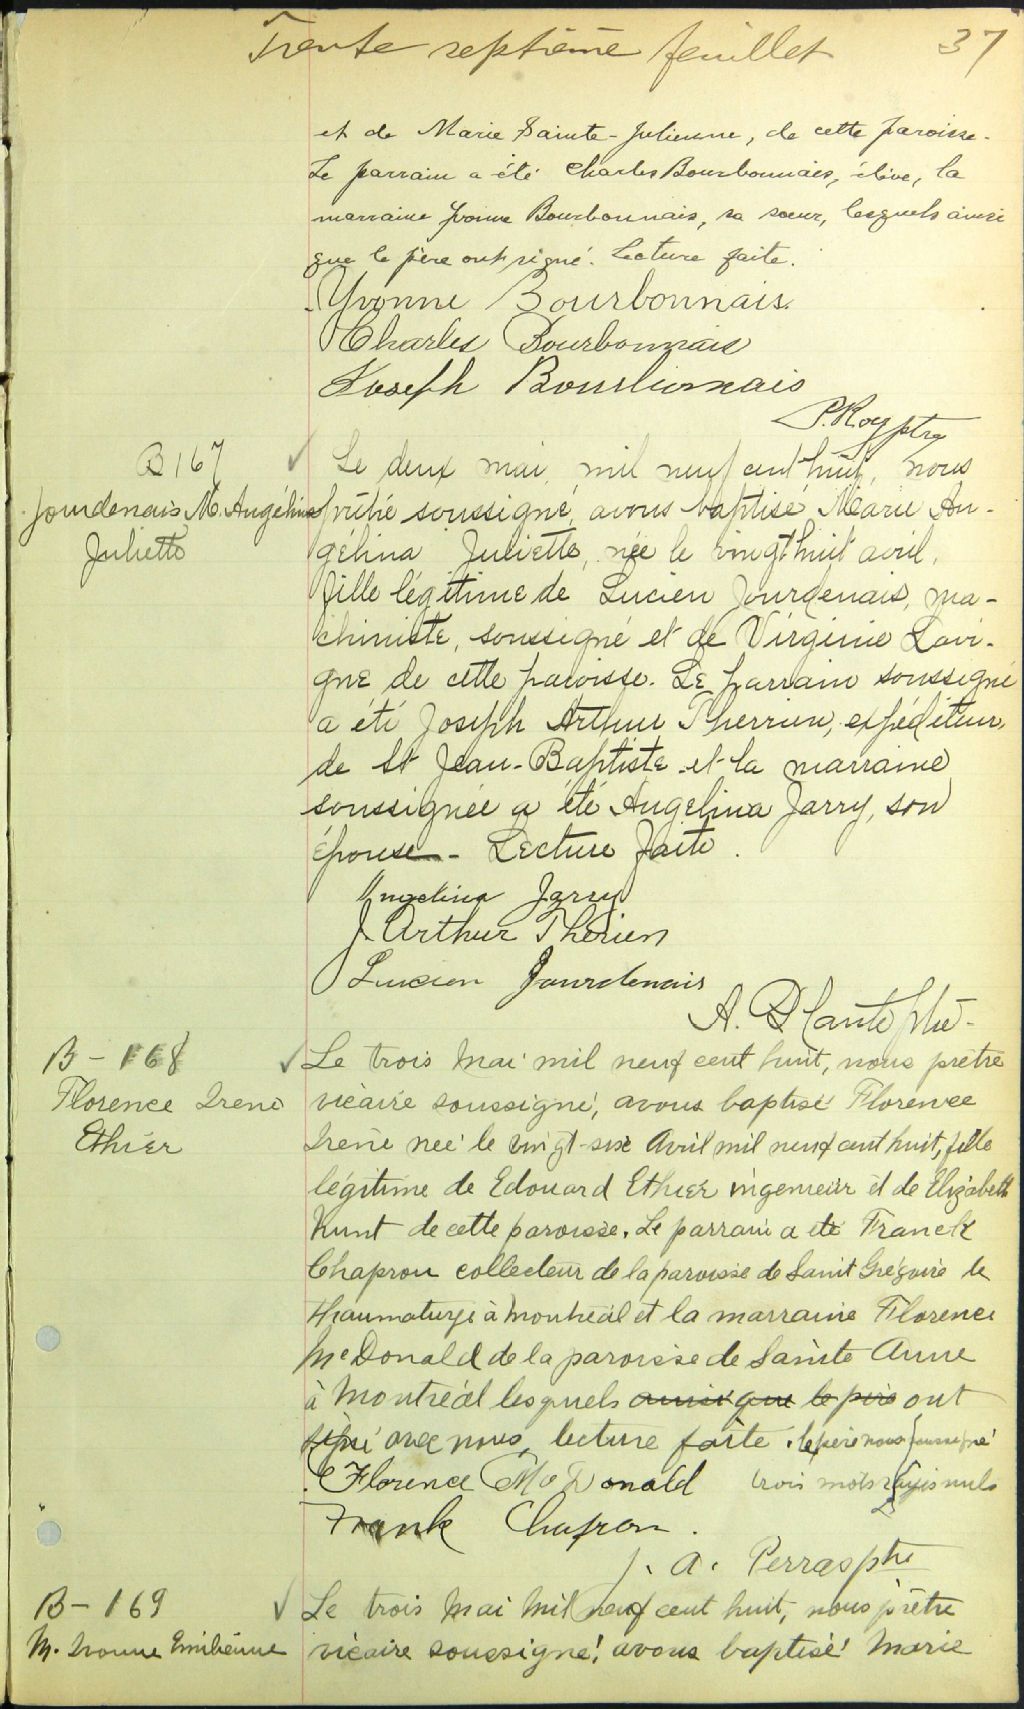 Trente septième feuillet 37
et de Marie Sainte-Julienne, de cette paroisse.
Le parrain a été Charles Bourbonnais, élève, la
marraine Yvonne Bourbonnais, sa soeur, lesquels ainsi
que le père ont signé. Lecture faite.
Yvonne Bourbonnais.
Charles Bourbonnais
Joseph Bourbonnais
P. Roy ptre
B 167
Jourdenais M. Angélina
Juliette
Le deux mai, mil neuf cent huit, nous
prêtre soussigné, avons baptisé Marie An-
gélina Juliette, née le vingt huit avril,
fille légitime de Lucien Jourdenais, ma-
chiniste, soussigné et de Virginie Lavi-
gne de cette paroisse. Le parrain soussigné
a été Joseph Arthur Therrien, expéditeur,
de St Jean-Baptiste et la marraine
soussignée a été Angelina Jarry, son
épouse - Lecture faite.
Angelina Jarry
J. Arthur Thérien
Lucien Jourdenais
A. Plante ptre -
B - 168
Florence Irene
Ethier
Le trois Mai mil neuf cent huit, nous prêtre
vicaire soussigné, avons baptisé Florence
Irene née le vingt-six Avril mil neuf cent huit, fille
légitime de Edouard Ethier ingenieur et de Elizabeth
Hunt de cette paroisse. Le parrain a été Franck
Chapron collecteur de la paroisse de Saint Grégoire le
Thaumaturge à Montréal et la marraine Florence
McDonald de la paroisse de Sainte Anne
à Montréal lesquels ainsi que le père ont
signé avec nous, lecture faite. le père non soussigné
Florence McDonald trois mots rayés nuls
Frank Chapron.
J. A. Perras ptre
B - 169
M. Ivonne Emilienne
Le trois Mai Mil neuf cent huit, nous prêtre
vicaire soussigné, avons baptisé Marie